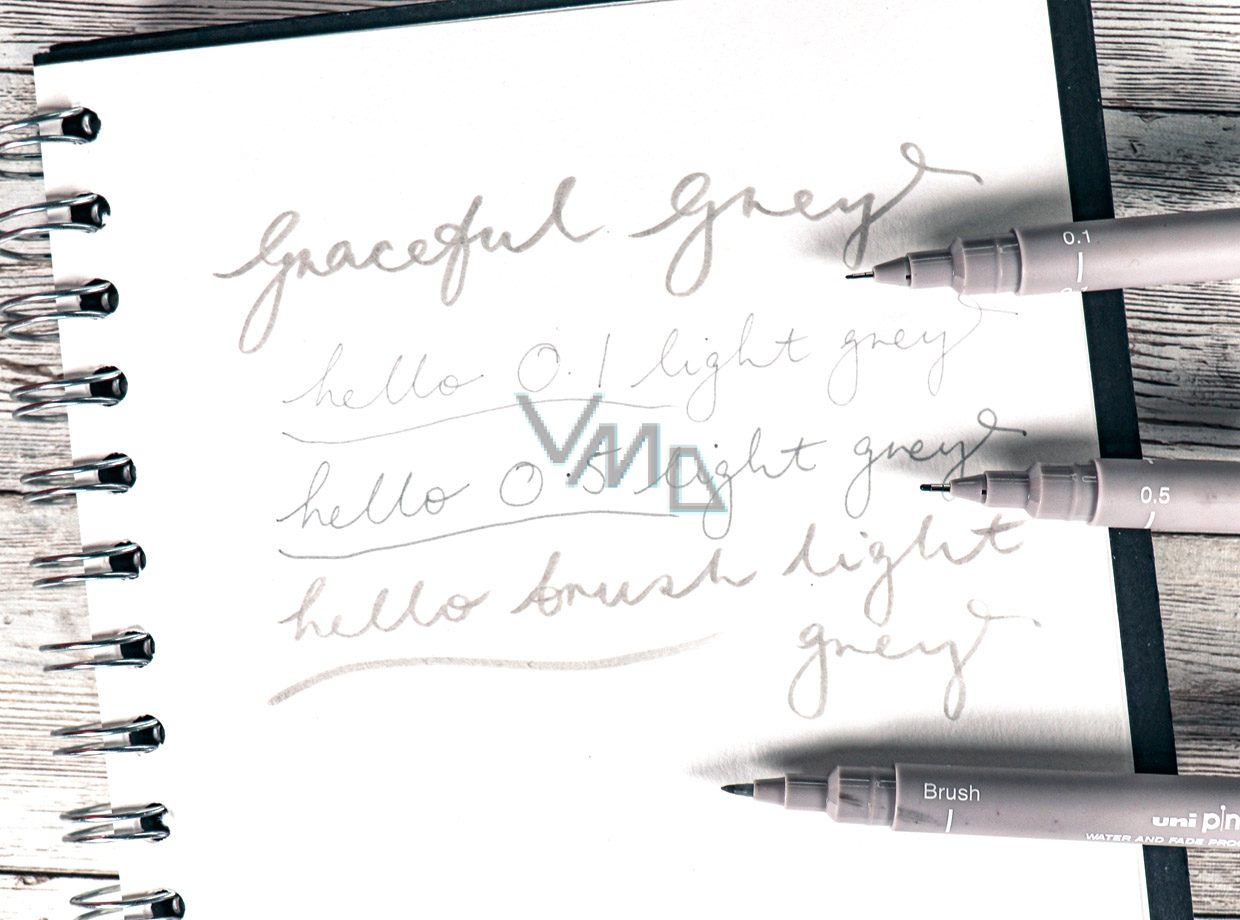 Graceful Grey
0.1
hello 0.1 light grey
VMD
hello 0.5 light grey
0.5
hello brush light
grey
Brush
uni pin
WATER AND FADE PROO